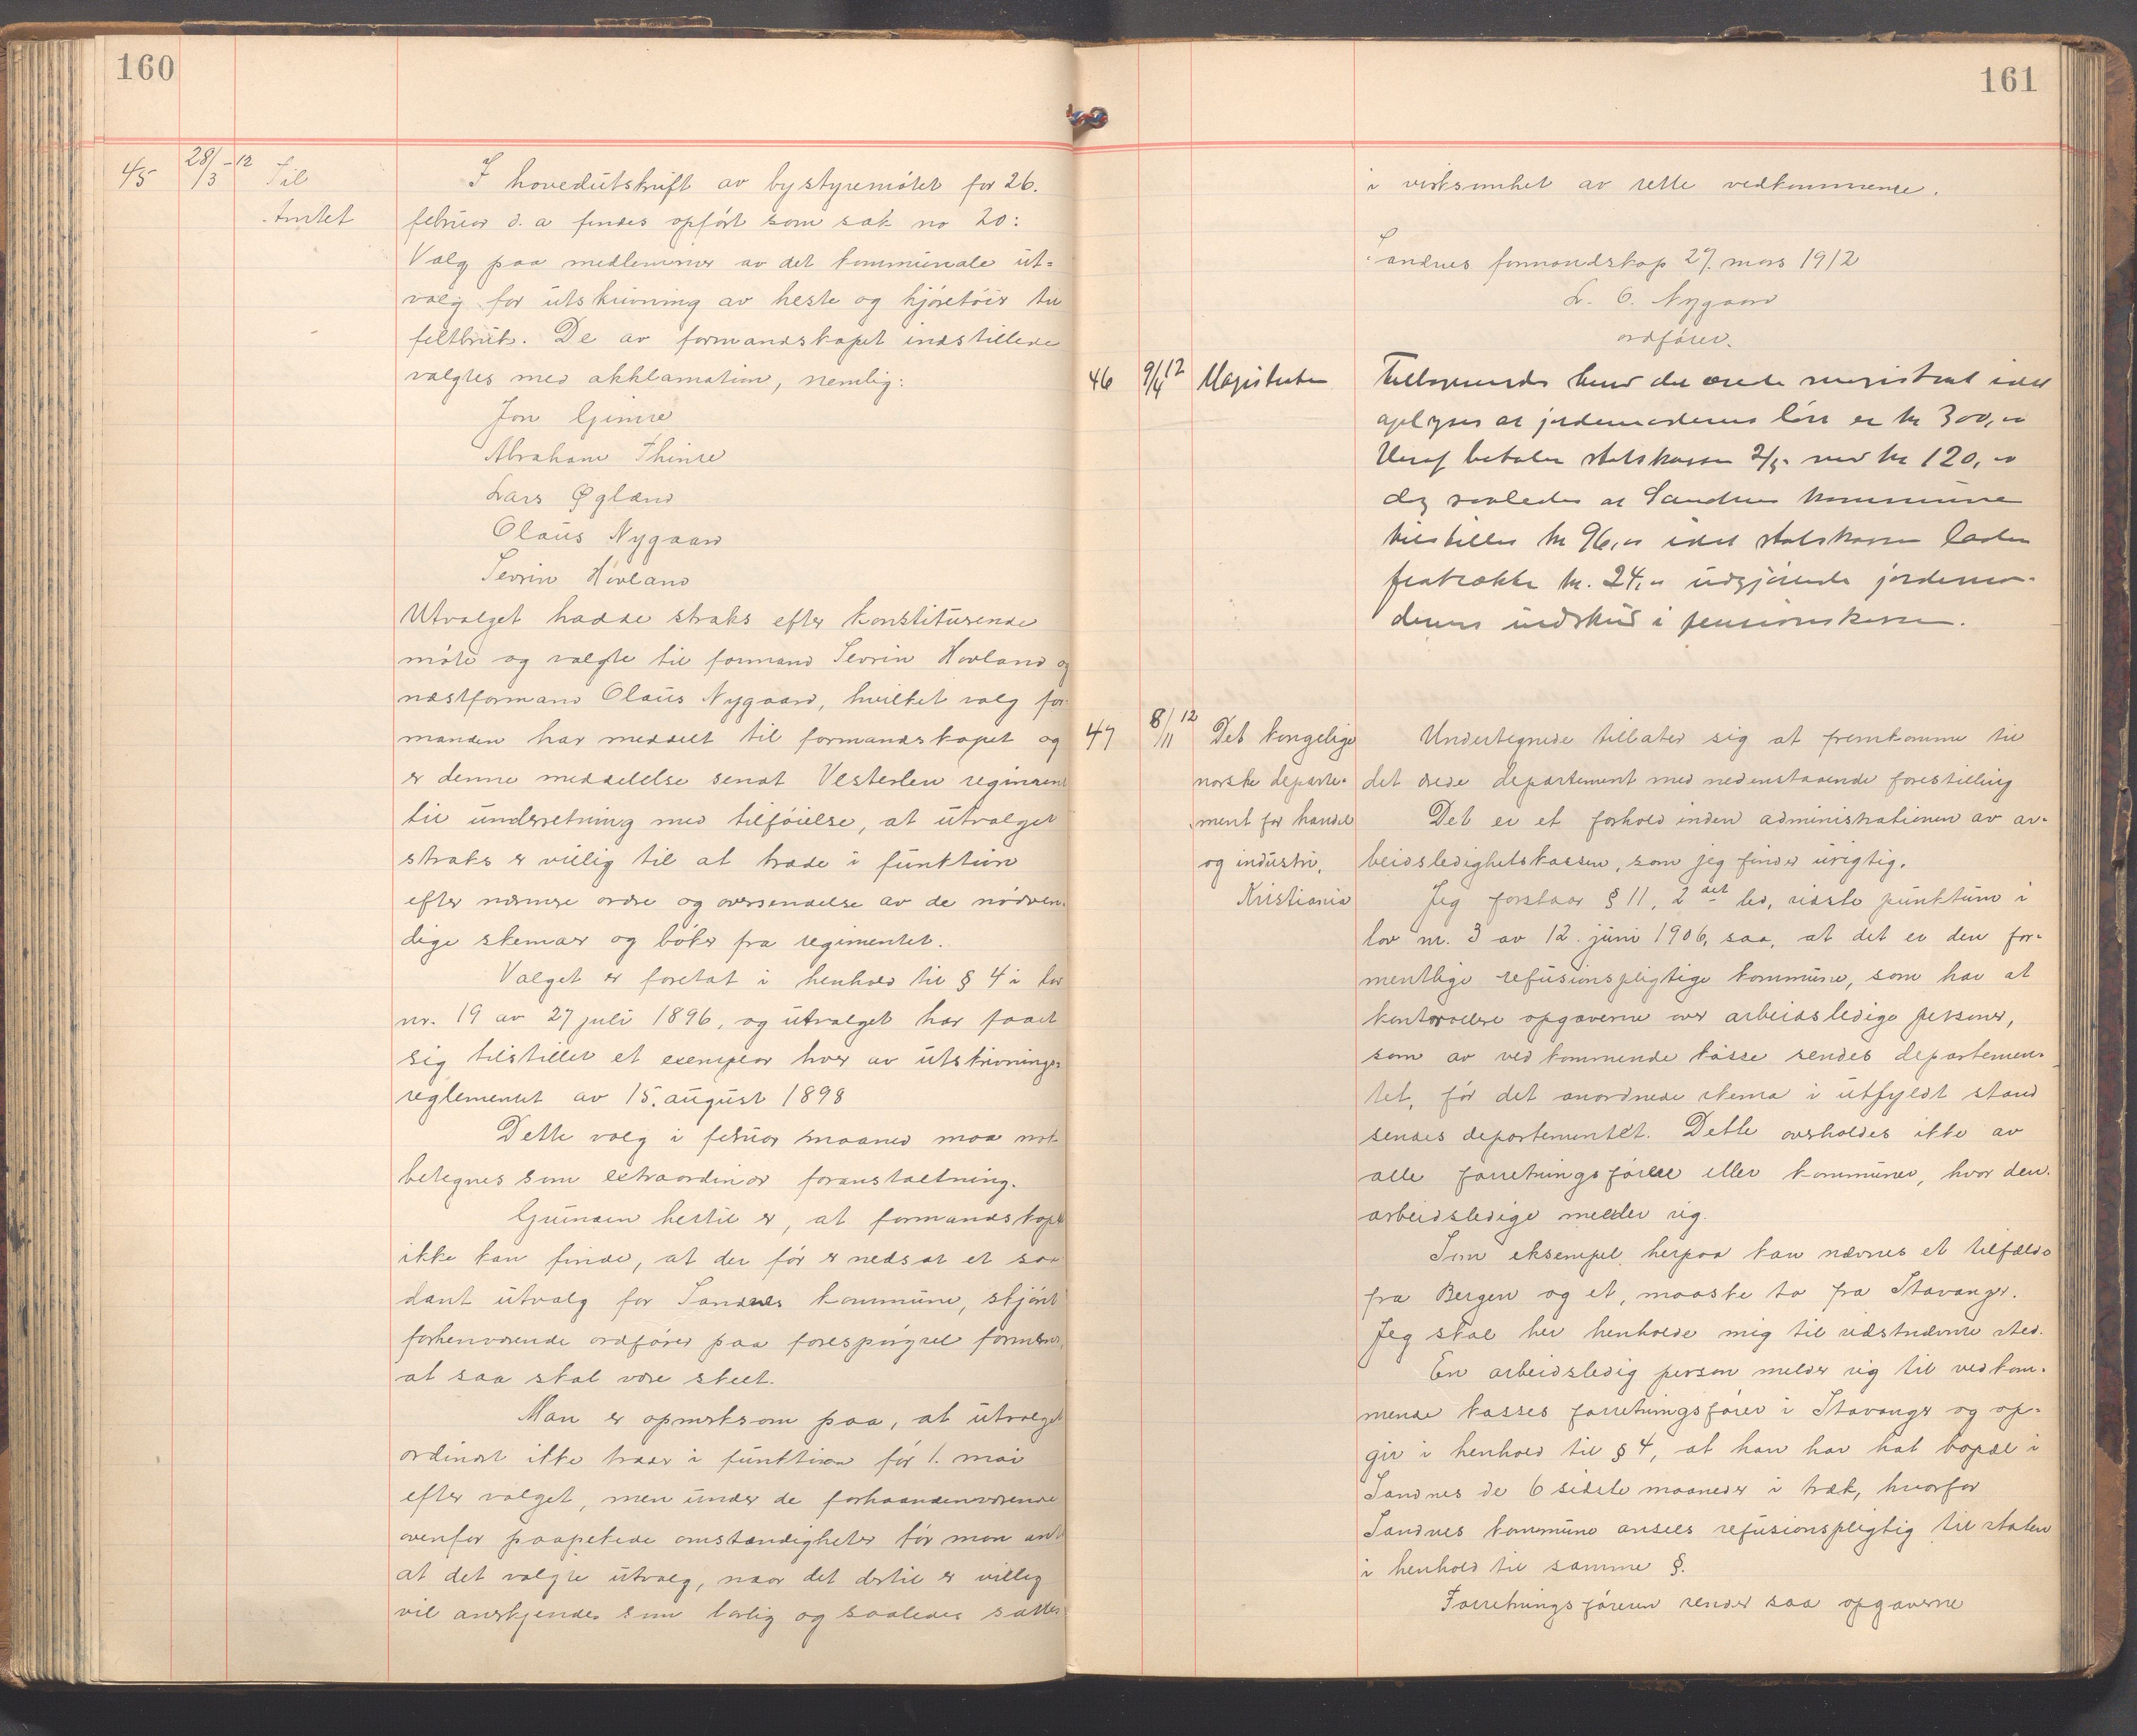 160
45 28/3 -12 Til
Amtet
I hovedutskrift av bystyremötet for 26.
februar d. a findes opfört som sak no 20:
Valg paa medlemmer av det kommunale ut=
valg for utskrivning av heste og kjöretöir til
feltbruk. De av formandskapet indstillede
valgtes med akklamation, nemlig:
Jon Gimre
Abraham Thime
Lars Øgland
Olaus Nygaard
Sevrin Hovland
Utvalget hadde straks efter konstituerende
möte og valgte til formand Sevrin Hovland og
næstformand Olaus Nygaard, hvilket valg for-
manden har meddelt til formandskapet og
er denne meddelelse sendt Vesterlen regiment
til underretning med tilföielse, at utvalget
straks er villig til at træde i funktion
efter nærmere ordre og oversendelse av de nödven-
dige skemaer og böker fra regimentet.
Valget er foretat i henhold til § 4 i lov
nr. 19 av 27 juli 1896, og utvalget har faaet
sig tilstillet et exemplar hver av utskrivnings-
reglementet av 15. august 1898
Dette valg i februar maaned maa
betegnes som extraordinær foranstaltning.
Grunden hertil er, at formandskapet
ikke kan finde, at der för er nedsat et saa-
dant utvalg for Sandnes kommune, skjönt
forhenværende ordförer paa forespörgsel formener,
at saa skal være skeet.
Man er opmerksom paa, at utvalget
ordinært ikke træder i funktion för 1. mai
efter valget, men under de forhaandenværende
ovenfor paapekede omstændigheter tör man anta
at det valgte utvalg, naar det dertil er villig
vil anerkjendes som lovlig og saaledes sættes
161
i virksomhet av rette vedkommende.
Sandnes formandskap 27. mars 1912
L. O. Nygaard
ordförer.
46 9/4 12 Magistraten
Tilbagesendes den ærede magistrat idet
oplyses at jordemoderens lön er kr 300,00
Heraf betaler statskassen 2/5 med kr 120,00
dog saaledes at Sandnes kommune
tilstilles kr 96,00 idet statskassen lader
fratrække kr. 24,00 udgjörende jordemo-
derens indskud i pensionskassen.
47 8/11 12 Det kongelige
norske departe-
ment for handel
og industri,
Kristiania
Undertegnede tillater sig at fremkomme til
det ærede departement med nedenstaaende forestilling
Det er et forhold inden administrationen av ar-
beidsledighetskassen, som jeg finder urigtig.
Jeg forstaar § 11, 2det led, sidste punktum i
lov nr. 3 av 12. juni 1906, saa, at det er den for-
mentlige refusionspligtige kommune, som har at
kontrollere opgaverne over arbeidsledige personer,
som av vedkommende kasse sendes departemen-
tet, för det anordnede skema i utfyldt stand
sendes departementet. Dette overholdes ikke av
alle forretningsförere eller kommuner, hvor den
arbeidsledige melder sig.
Som eksempel herpaa kan nævnes et tilfælde
fra Bergen og et, maaske to fra Stavanger.
Jeg skal her henholde mig til sidstnævnte sted.
En arbeidsledig person melder sig til vedkom-
mende kasses forretningsförer i Stavanger og op-
gir i henhold til § 4, at han har hat bopæl i
Sandnes de 6 sidste maaneder i træk, hvorfor
Sandnes kommune ansees refusionspligtig til staten
i henhold til samme §.
Forretningsföreren sender saa opgaverne